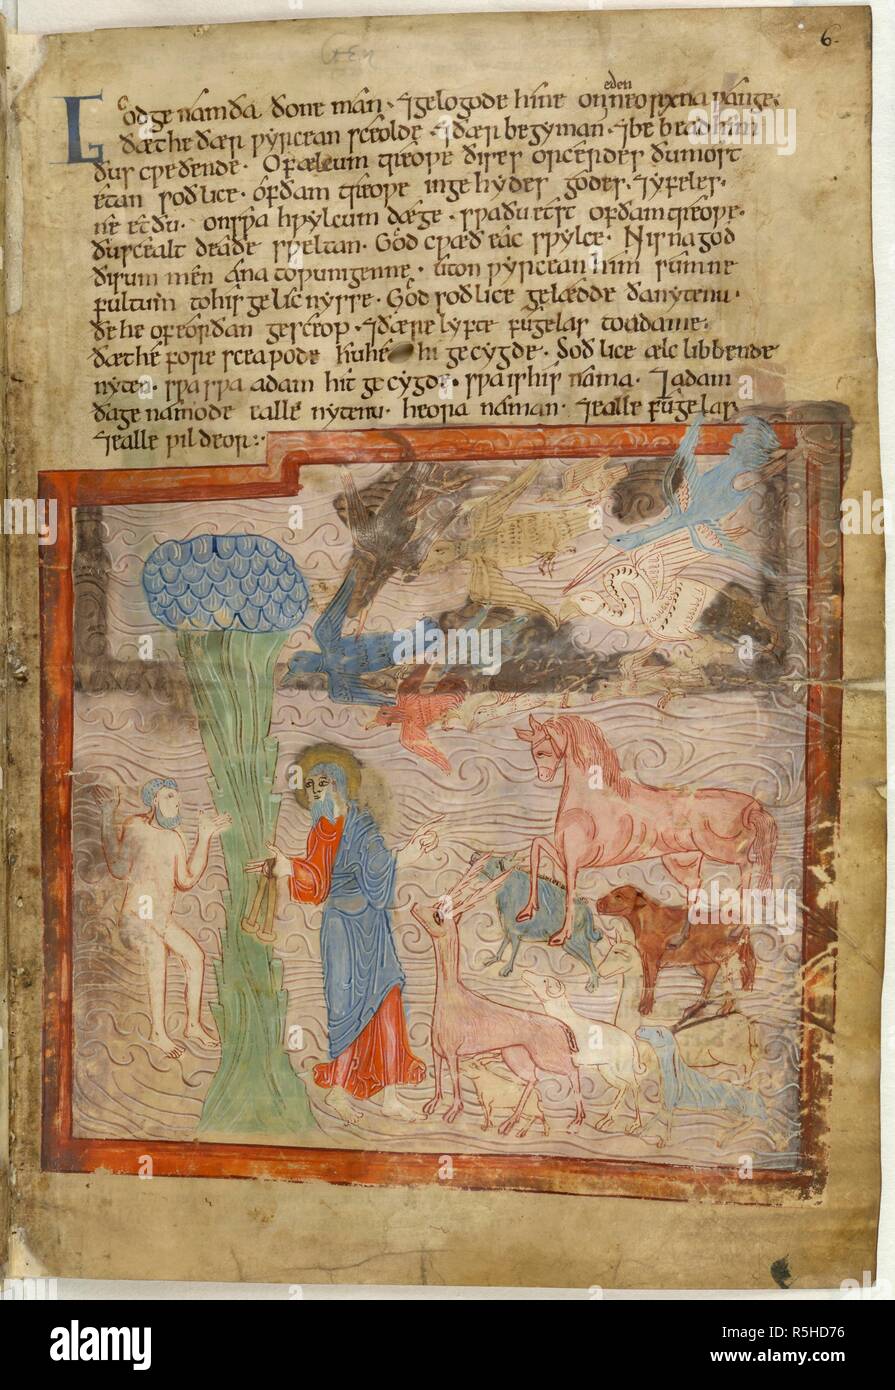 6.
Gen
eden
God genam ða ðone man · ⁊ gelogode hine on neorxna ƿange ·
ðæt he ðær ƿyrcean sceolde · ⁊ ðær begyman · ⁊ be bead him
ðus cƿeðende · Of ælcum treoƿe ðises orcerdes ðu most
etan soðlice · of ðam treoƿe ingehydes godes · ⁊ yfeles ·
ne et ðu · on sƿa hƿylcum dæge · sƿa ðu etst of ðam treoƿe ·
ðu scealt deaðe sƿeltan · God cƿæð eac sƿylce · Nis na god
ðisum men ana to ƿunigenne · uton ƿyrcean him sumne
fultum to his gelicnysse · God soðlice gelædde ða nytenu ·
ðe he of eorðan gesceop · ⁊ ðære lyfte fugelas to adame ·
ðæt he fore sceaƿode hu he hi gecygde · Soðlice ælc libbende
nyten · sƿa sƿa adam hit gecygde · sƿa is his nama · ⁊ adam
ða genamode ealle nytenu · heora naman · ⁊ ealle fugelas
⁊ ealle ƿildeor :·
alamy
alamy
Image ID: R5HD76
www.alamy.com